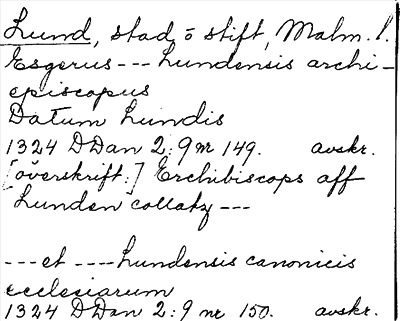 Lund, stad ō stift, Malm. l.
Esgerus --- Lundensis archi-
episcopus
Datum Lundis
1324 DDan 2:9 nr 149. avskr.
[överskrift:] Erchibiscops aff
Lunden collatz ---
--- et ---- Lundensis canonicis
ecclesiarum
1324 DDan 2:9 nr 150. avskr.